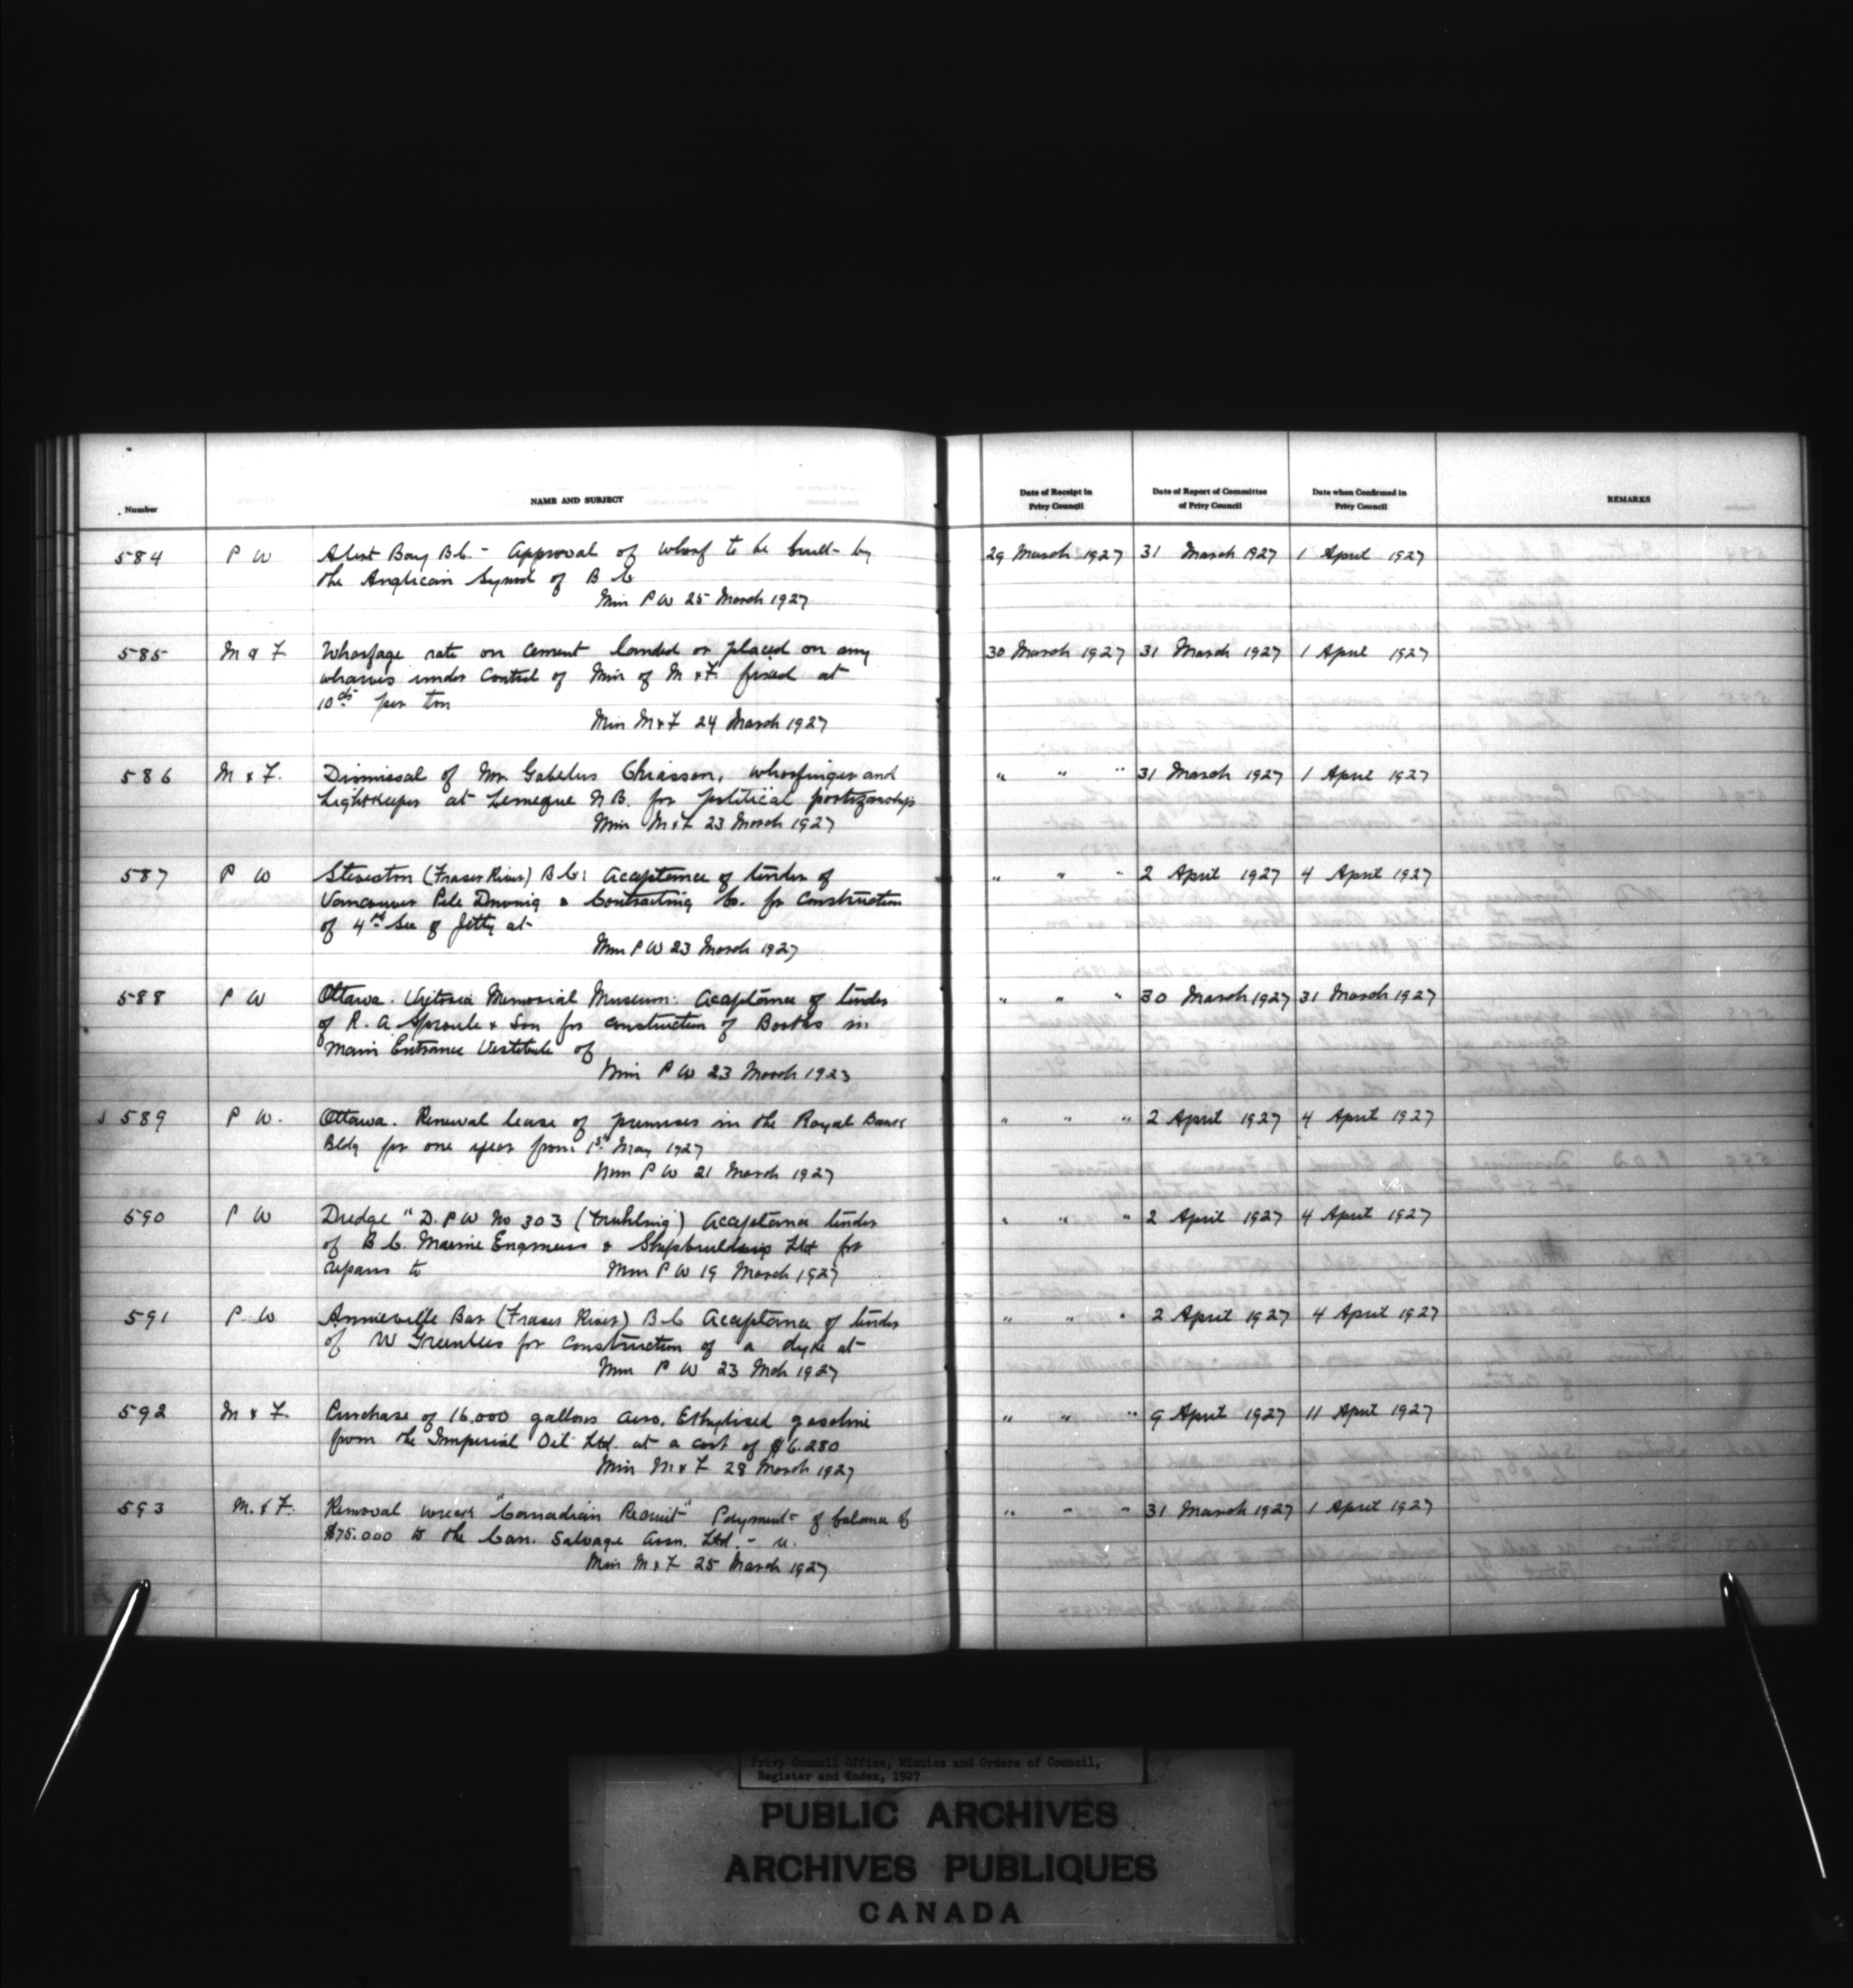 Number
NAME AND SUBJECT
Date of Receipt in
Privy Council
Date of Report of Committee
of Privy Council
Date when Confirmed in
Privy Council
REMARKS
584 P W Alert Bay B.C. - Approval of wharf to be built by 29 March 1927 31 March 1927 1 April 1927
the Anglican Synod of B C
Min P W 25 March 1927
585 M & F Wharfage rate on cement landed or placed on any 30 March 1927 31 March 1927 1 April 1927
wharves under Control of Min of M & F. fixed at
10 cts per ton
Min M & F 24 March 1927
586 M & F. Dismissal of Mr. Gabelus Chiasson, wharfinger and " " " 31 March 1927 1 April 1927
Lightkeeper at Lameque N.B. for political partizanship
Min M & F 23 March 1927
587 P W Steveston (Fraser River) B.C: Acceptance of tender of " " " 2 April 1927 4 April 1927
Vancouver Pile Driving & Contracting Co. for Construction
of 4th Sec of Jetty at
Min P W 23 March 1927
588 P W Ottawa. Victoria Memorial Museum: Acceptance of tender " " " 30 March 1927 31 March 1927
of R. A. Sproule & Son for construction of Booths in
Main Entrance Vestibule of
Min P W 23 March 1923
589 P W. Ottawa. Renewal lease of premises in the Royal Bank " " " 2 April 1927 4 April 1927
Bldg for one year from 1st May 1927
Min P W 21 March 1927
590 P W Dredge "D. P W No 303 (Fruhling) Acceptance tender " " " 2 April 1927 4 April 1927
of B C. Marine Engineers & Shipbuilders Ltd for
repairs to Min P W 19 March 1927
591 P W Annieville Bar (Fraser River) B C Acceptance of tender " " " 2 April 1927 4 April 1927
of W Greenlees for construction of a dyke at
Min P W 23 Mch 1927
592 M & F. Purchase of 16.000 gallons Aero. Ethylised gasoline " " " 9 April 1927 11 April 1927
from the Imperial Oil Ltd. at a cost of $6.280
Min M & F 28 March 1927
593 M. & F. Removal wreck "Canadian Recruit" Payment of balance of " " " 31 March 1927 1 April 1927
$75.000 to the Can. Salvage Assn. Ltd. -
Min M & F 25 March 1927
Privy Council Office, Minutes and Orders of Council,
Register and Index, 1927
PUBLIC ARCHIVES
ARCHIVES PUBLIQUES
CANADA